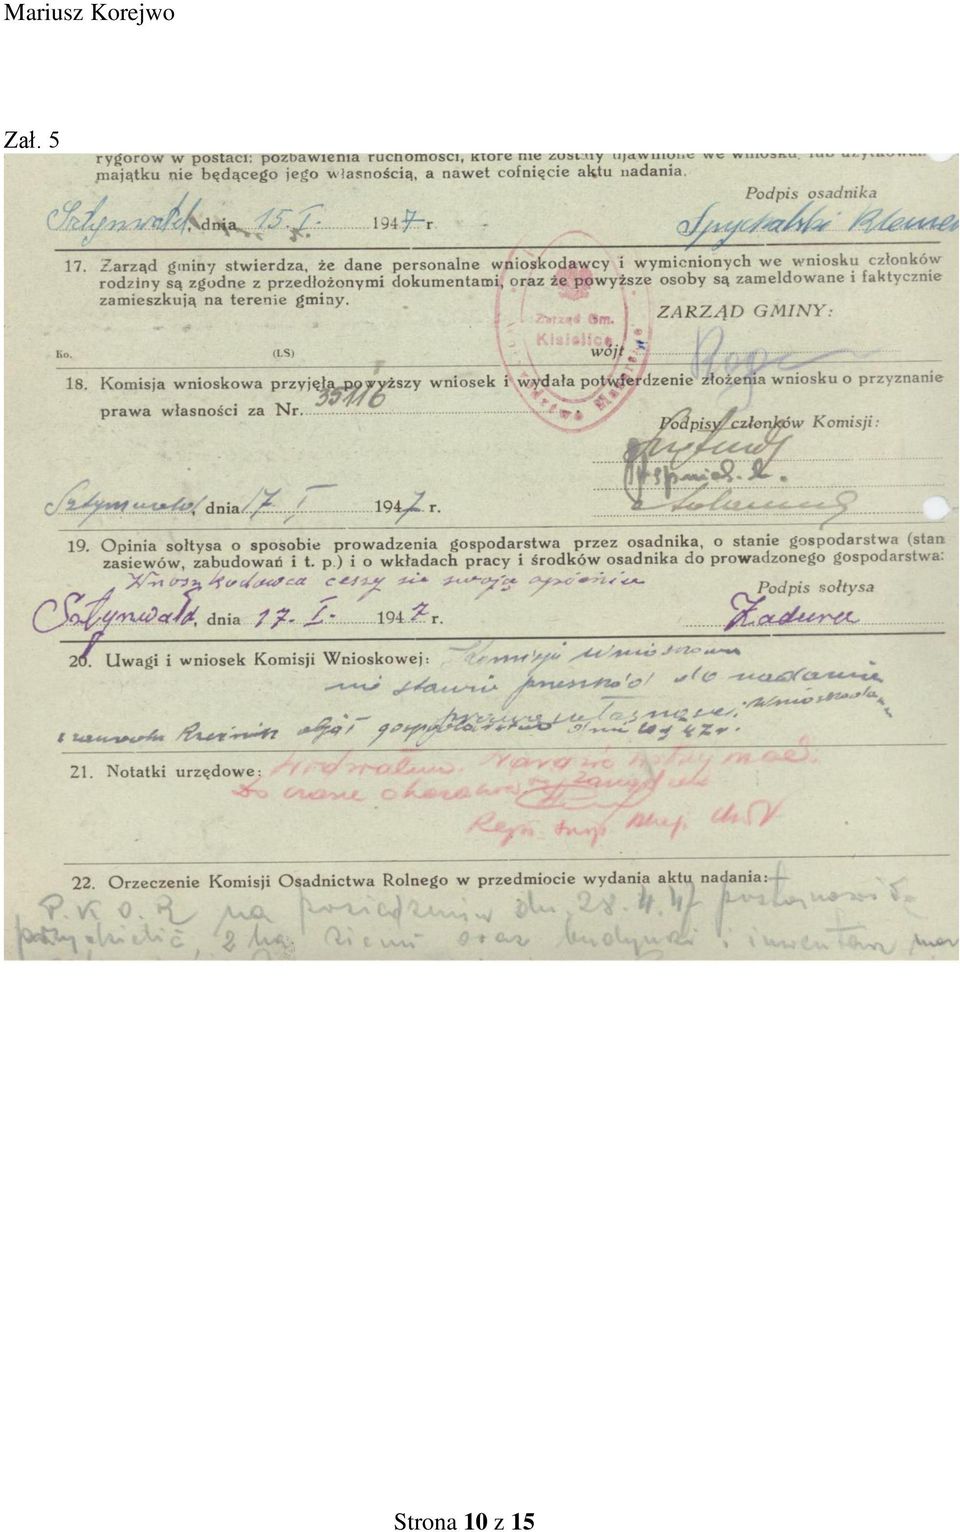 Mariusz Korejwo
Zał. 5
rygorów w postaci: pozbawienia ruchomości, które nie zostały ujawnione we wniosku, lub
majątku nie będącego jego własnością, a nawet cofnięcie aktu nadania.
Podpis osadnika
Sztynwałd, dnia 15. I. 1947 r. Spychalski Klemen
17. Zarząd gminy stwierdza, że dane personalne wnioskodawcy i wymienionych we wniosku członków
rodziny są zgodne z przedłożonymi dokumentami, oraz że powyższe osoby są zameldowane i faktycznie
zamieszkują na terenie gminy.
ZARZĄD GMINY:
Zarząd Gm.
Kisielice
Ko. (LS) wójt
18. Komisja wnioskowa przyjęła powyższy wniosek i wydała potwierdzenie złożenia wniosku o przyznanie
prawa własności za Nr. 35116
Podpisy członków Komisji:
dnia 17. I 1947 r.
19. Opinia sołtysa o sposobie prowadzenia gospodarstwa przez osadnika, o stanie gospodarstwa (stan
zasiewów, zabudowań i t. p.) i o wkładach pracy i środków osadnika do prowadzonego gospodarstwa:
Podpis sołtysa
Sztynwałd, dnia 17. I. 1947 r. Zadura
20. Uwagi i wniosek Komisji Wnioskowej: Komisja wnioskowa
nie stawia do nadania
objął
21. Notatki urzędowe:
22. Orzeczenie Komisji Osadnictwa Rolnego w przedmiocie wydania aktu nadania:
P.K.O.R na posiedzeniu dn. 28.4.47 postanowiła
2 ha ziemi oraz budynki i inwentarz
Strona 10 z 15